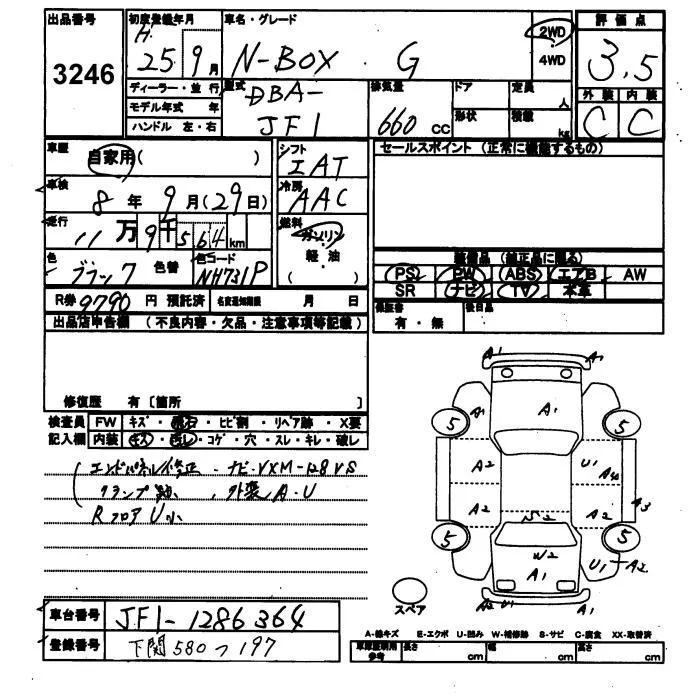 出品番号 3246
初度登録年月 H 25年 9月
車名・グレード N-BOX・G
2WD
4WD
評価点 3.5
外装 内装
C C
ディーラー・並行
モデル年式 年
ハンドル 左・右
型式 DBA-
JF1
排気量 660 cc
ドア
形状
定員 人
積載 kg
車歴 自家用( )
車検 8年 9月(29日)
走行 11万9千564km
色 ブラック 色替
色コード NH731P
シフト IAT
冷房 AAC
燃料 ガソリン
軽・油
( )
セールスポイント (正常に機能するもの)
装備品 (純正品に限る)
PS PW ABS エアB AW
SR ナビ TV 本革
R券 9790 円 預託済 名変通知期限 月 日
保証書 有・無
後日品
出品店申告欄 (不良内容・欠品・注意事項等記載)
修復歴 有〔箇所 〕
検査員 FW キズ・飛石・ヒビ割・リペア跡・X要
記入欄 内装 キズ・汚レ・コゲ・穴・スレ・キレ・破レ
エンドパネル修正 ・ナビ・VXM-128VS
クランプ跡 ・外装A・U
RフロアU小
A1 A1
A1 A1
5 5
A2 U1 A2
A2 A2 A3
S2
5 5
W2
A1
U1 A2
A2 U1 A1
スペア
車台番号 JF1-1286364
登録番号 下関580つ197
A-線キズ E-エクボ U-凹み W-補修跡 S-サビ C-腐食 XX-取替済
車庫証明用参考 長さ cm 幅 cm 高さ cm